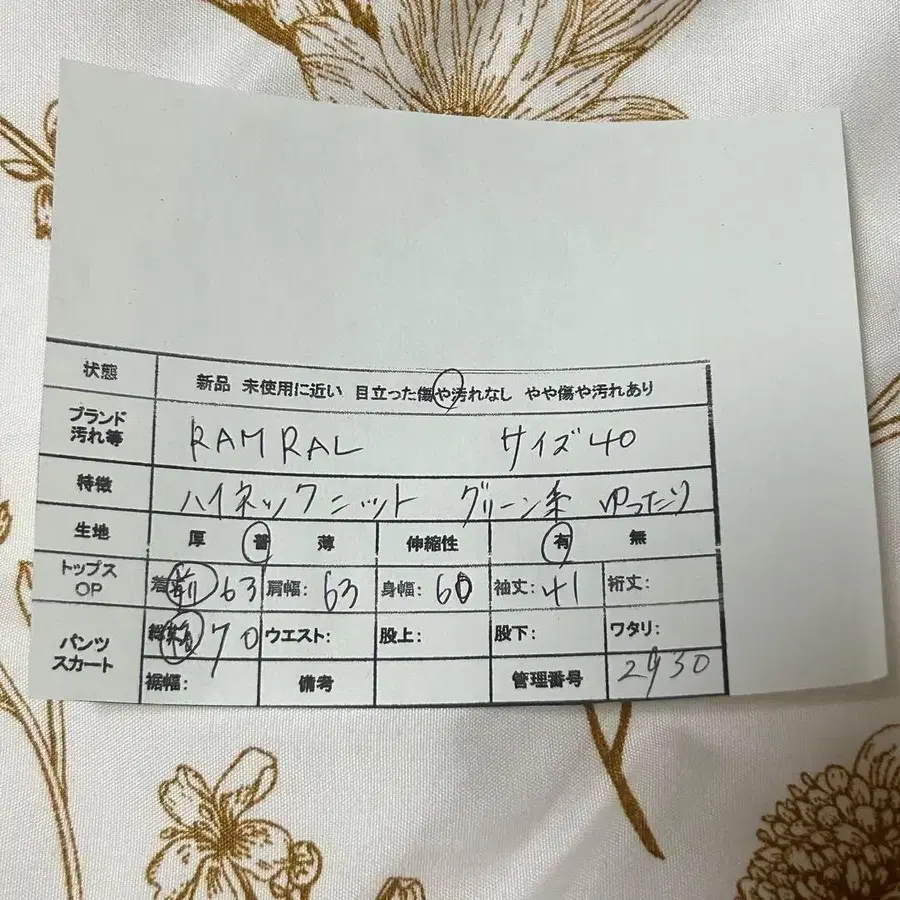 状態 新品 未使用に近い 目立った傷や汚れなし やや傷や汚れあり
ブランド
汚れ等 RAM RAL サイズ 40
特徴 ハイネックニット グリーン系 ゆったり
生地 厚 普 薄 伸縮性 有 無
トップス
OP 着 前 63 肩幅: 63 身幅: 60 袖丈: 41 裄丈:
パンツ
スカート 70 ウエスト: 股上: 股下: ワタリ:
裾幅: 備考 管理番号 2930